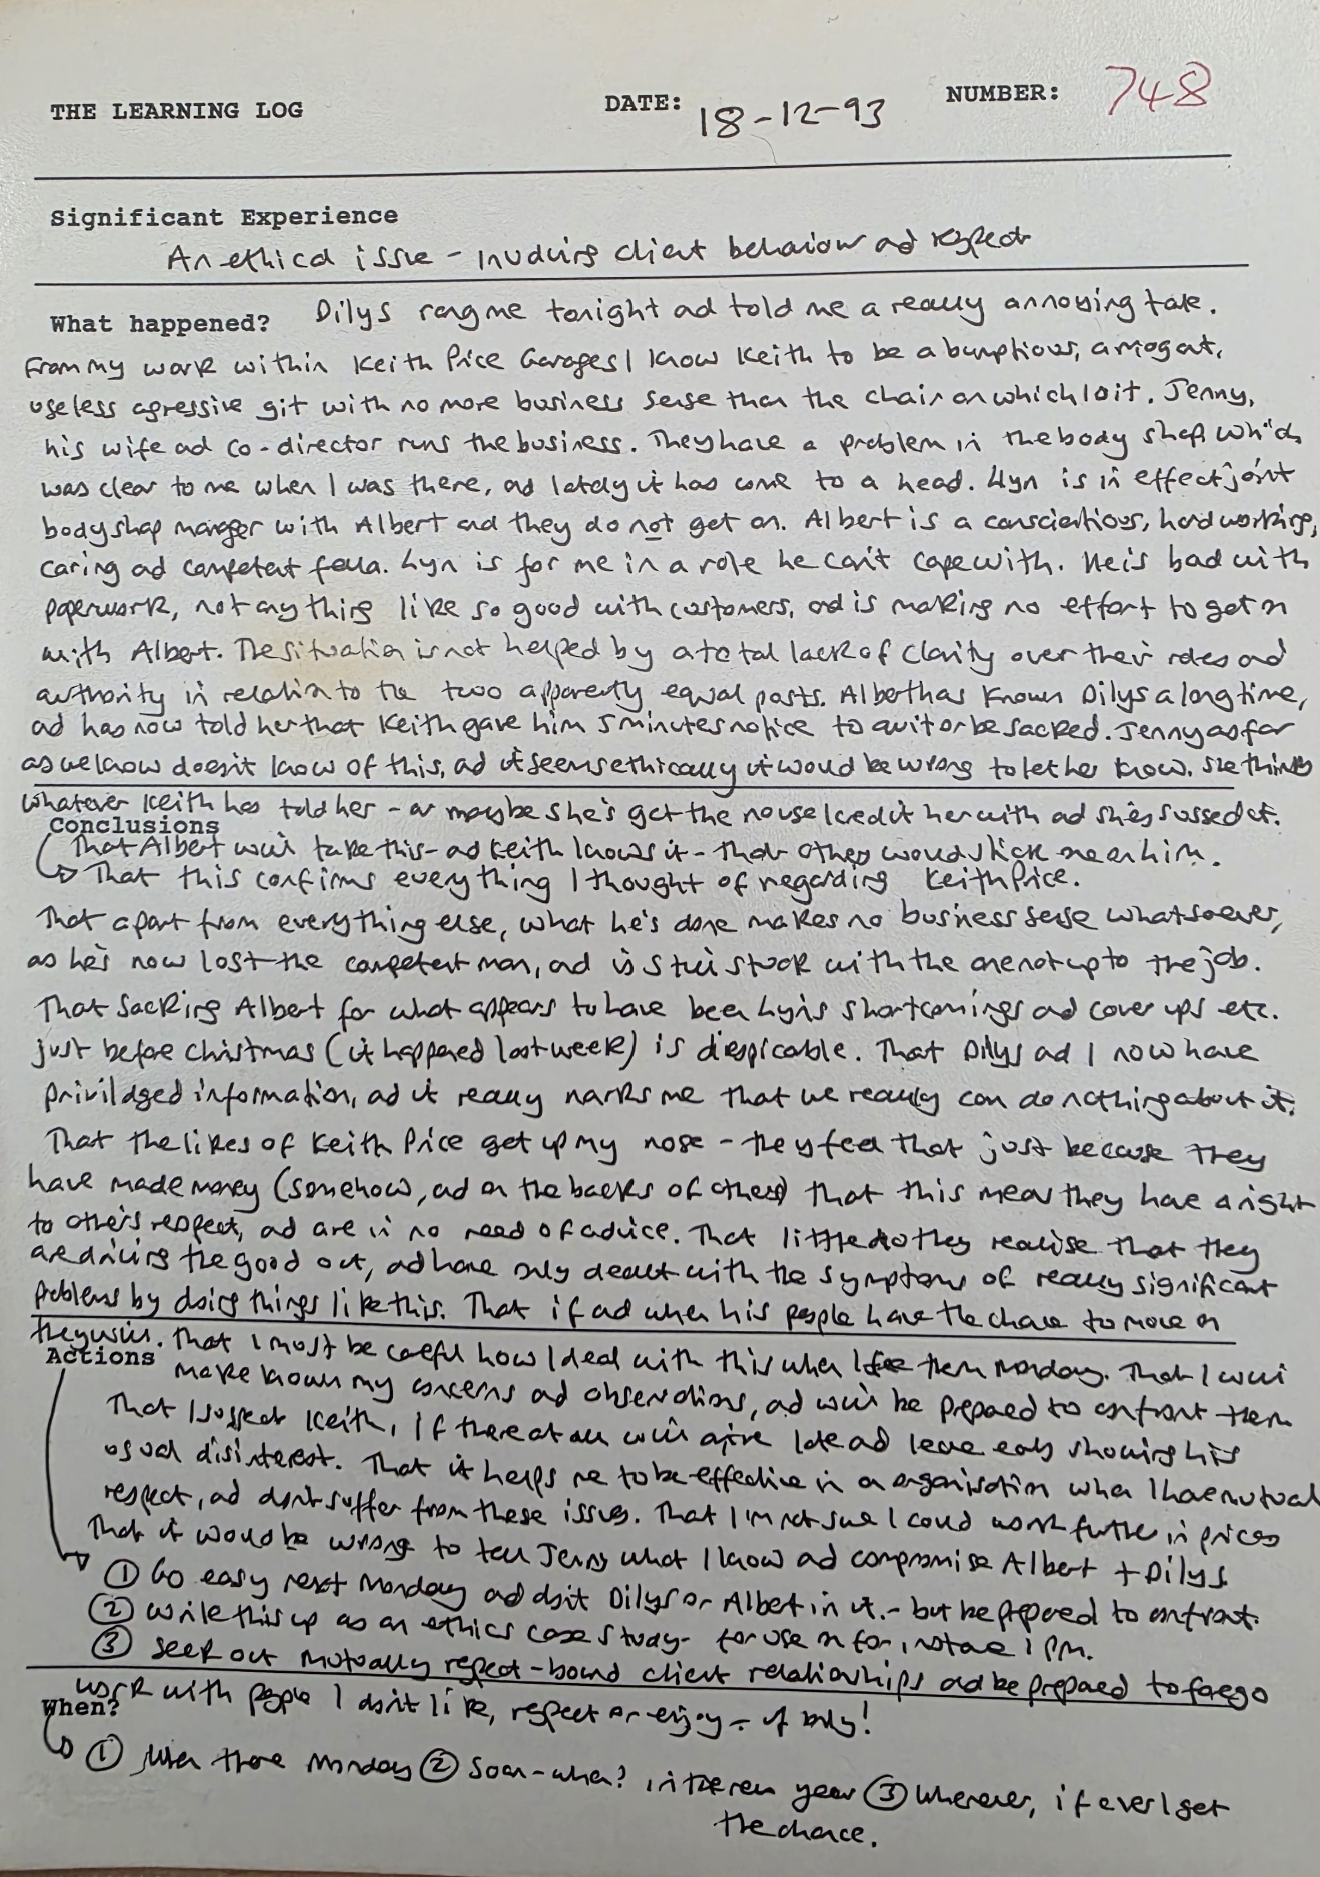 THE LEARNING LOG DATE: 18-12-93 NUMBER: 748
Significant Experience
An ethical issue - involving client behaviour ad respect
What happened? Dilys rang me tonight ad told me a really annoying tale.
From my work within Keith Price Garages I know Keith to be a bumptious, arrogant,
useless agressive git with no more business sense than the chair on which I sit. Jenny,
his wife ad co-director runs the business. They have a problem in the body shop which
was clear to me when I was there, ad lately it has come to a head. Lyn is in effect joint
bodyshop manager with Albert and they do not get on. Albert is a conscientious, hard working,
caring ad competent fella. Lyn is for me in a role he can't cope with. He is bad with
paperwork, not anything like so good with customers, ad is making no effort to get on
with Albert. The situation is not helped by a total lack of clarity over their roles and
authority in relation to the two apparently equal posts. Albert has known Dilys a long time,
ad has now told her that Keith gave him 5 minutes notice to quit or be sacked. Jenny as far
as we know doesn't know of this, ad it seems ethically it would be wrong to let her know. She thinks
whatever Keith has told her - or maybe she's got the nouse I credit her with ad she's sussed it.
Conclusions
That Albert will take this - ad Keith knows it - that others would stick one on him.
That this confirms everything I thought of regarding Keith Price.
That apart from everything else, what he's done makes no business sense whatsoever,
as he's now lost the competent man, ad is still stuck with the one not up to the job.
That sacking Albert for what appears to have been Lyn's shortcomings ad cover ups etc.
just before christmas (it happened last week) is despicable. That Dilys ad I now have
priviledged information, ad it really narks me that we really can do nothing about it.
That the likes of Keith Price get up my nose - they feel that just because they
have made money (somehow, ad on the backs of others) that this means they have a right
to other's respect, ad are in no need of advice. That little do they realise that they
are driving the good out, ad have only dealt with the symptoms of really significant
problems by doing things like this. That if ad when his people have the chance to move on
they will. That I must be careful how I deal with this when I see them Monday. That I will
Actions make known my concerns ad observations, ad will be prepared to confront them
That I suspect Keith, if there at all will arrive late ad leave early showing his
usual disinterest. That it helps me to be effective in an organisation when I have mutual
respect, ad don't suffer from these issues. That I'm not sure I could work further in prices
That it would be wrong to tell Jenny what I know ad compromise Albert + Dilys
① Go easy next Monday ad don't Dilys or Albert in it. - but be prepared to confront.
② write this up as an ethics case study - for use in for, instance IPM.
③ Seek out mutually respect-bound client relationships ad be prepared to forego
work with people I don't like, respect or enjoy - if only!
When?
① When there Monday ② Soon - when? in the new year ③ Whenever, if ever I get
the chance.